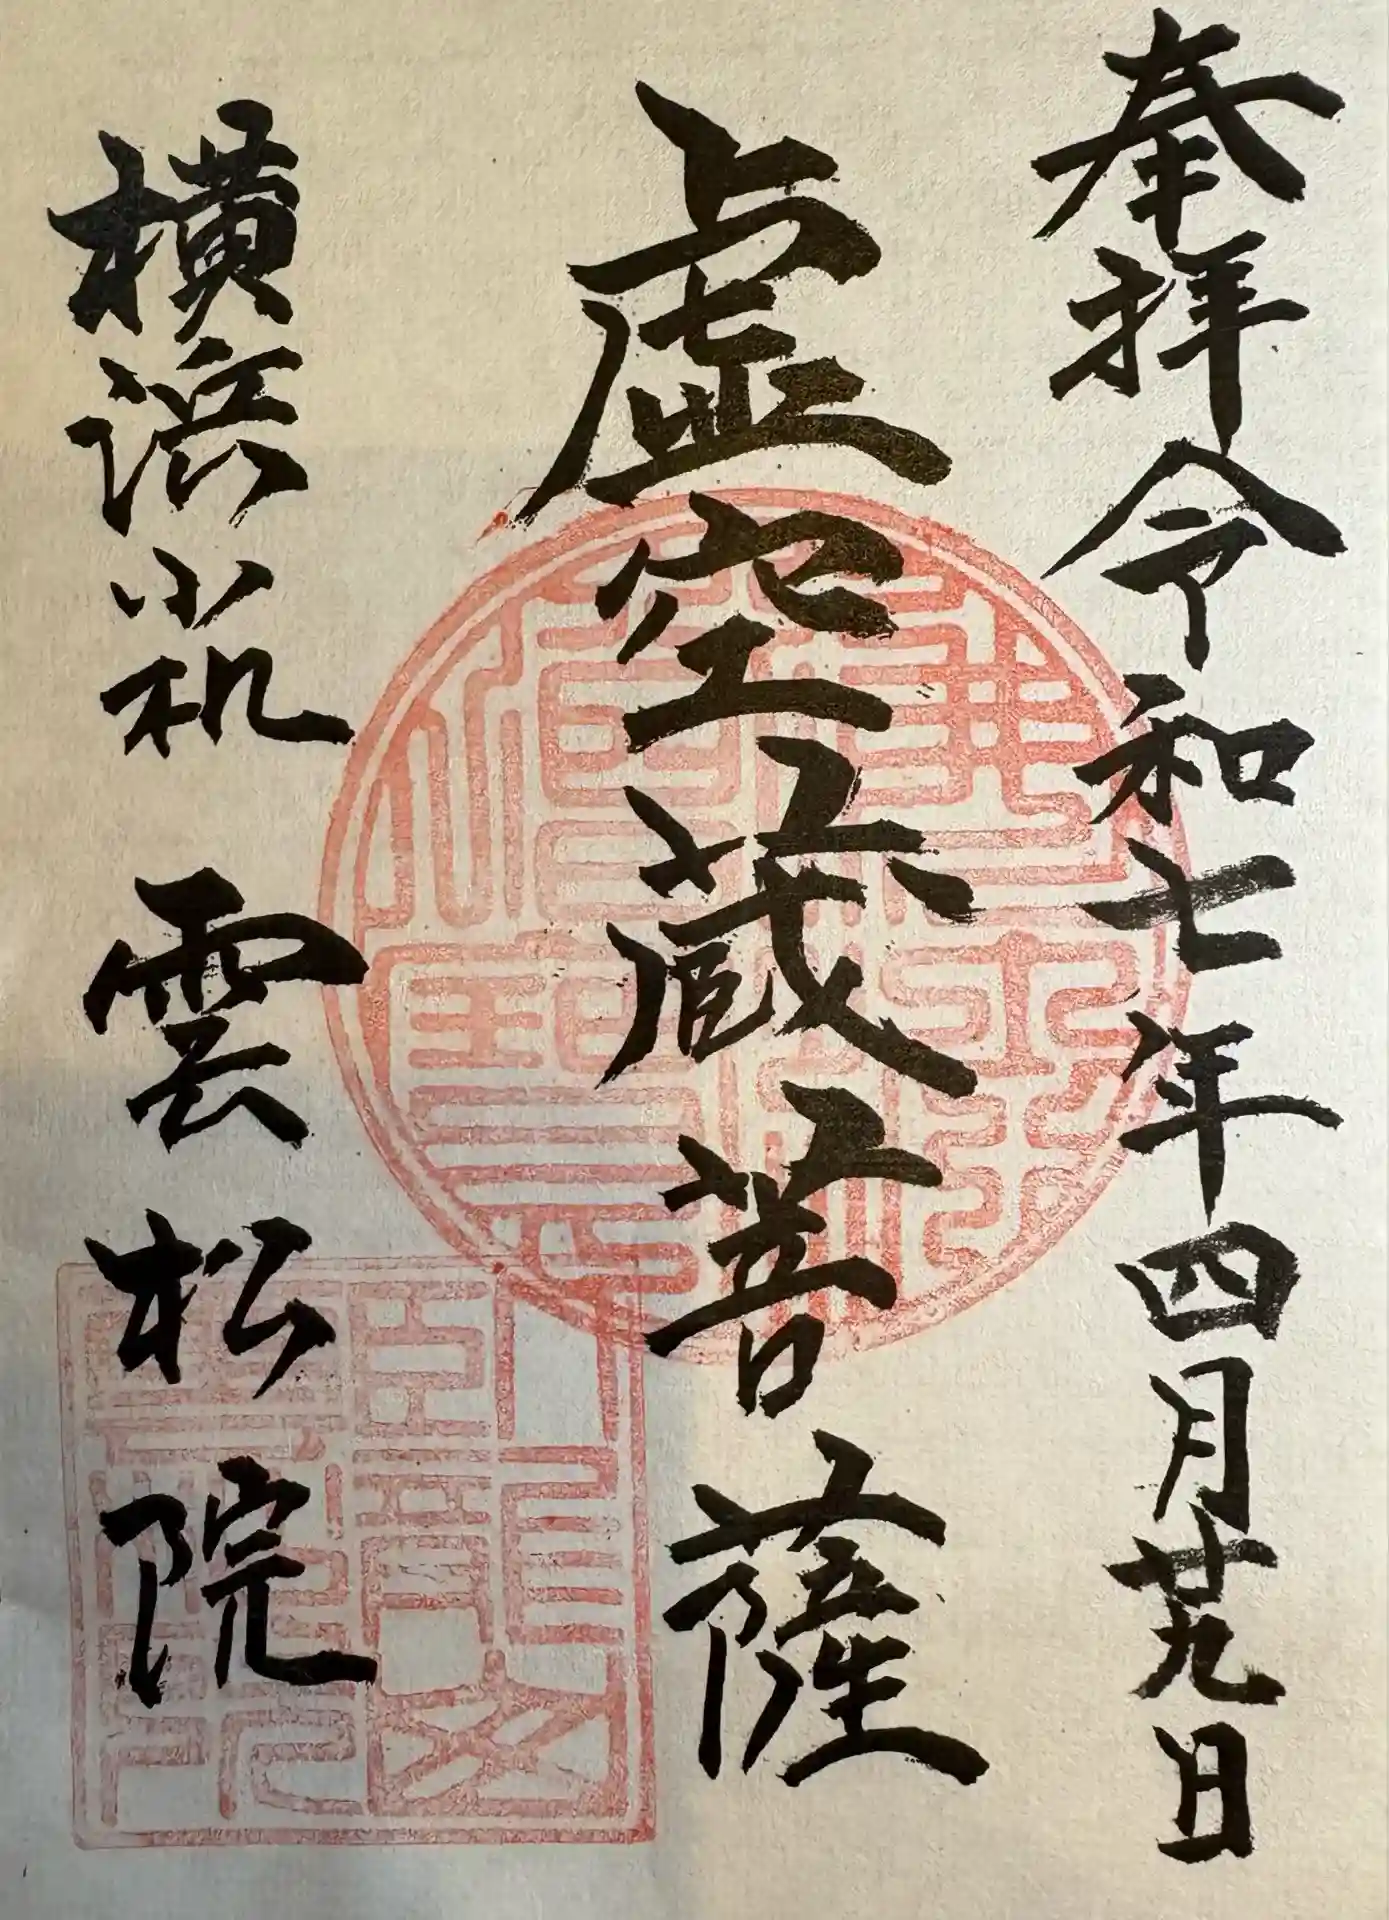 奉拝令和七年四月廿九日
虚空蔵菩薩
横浜小机 雲松院